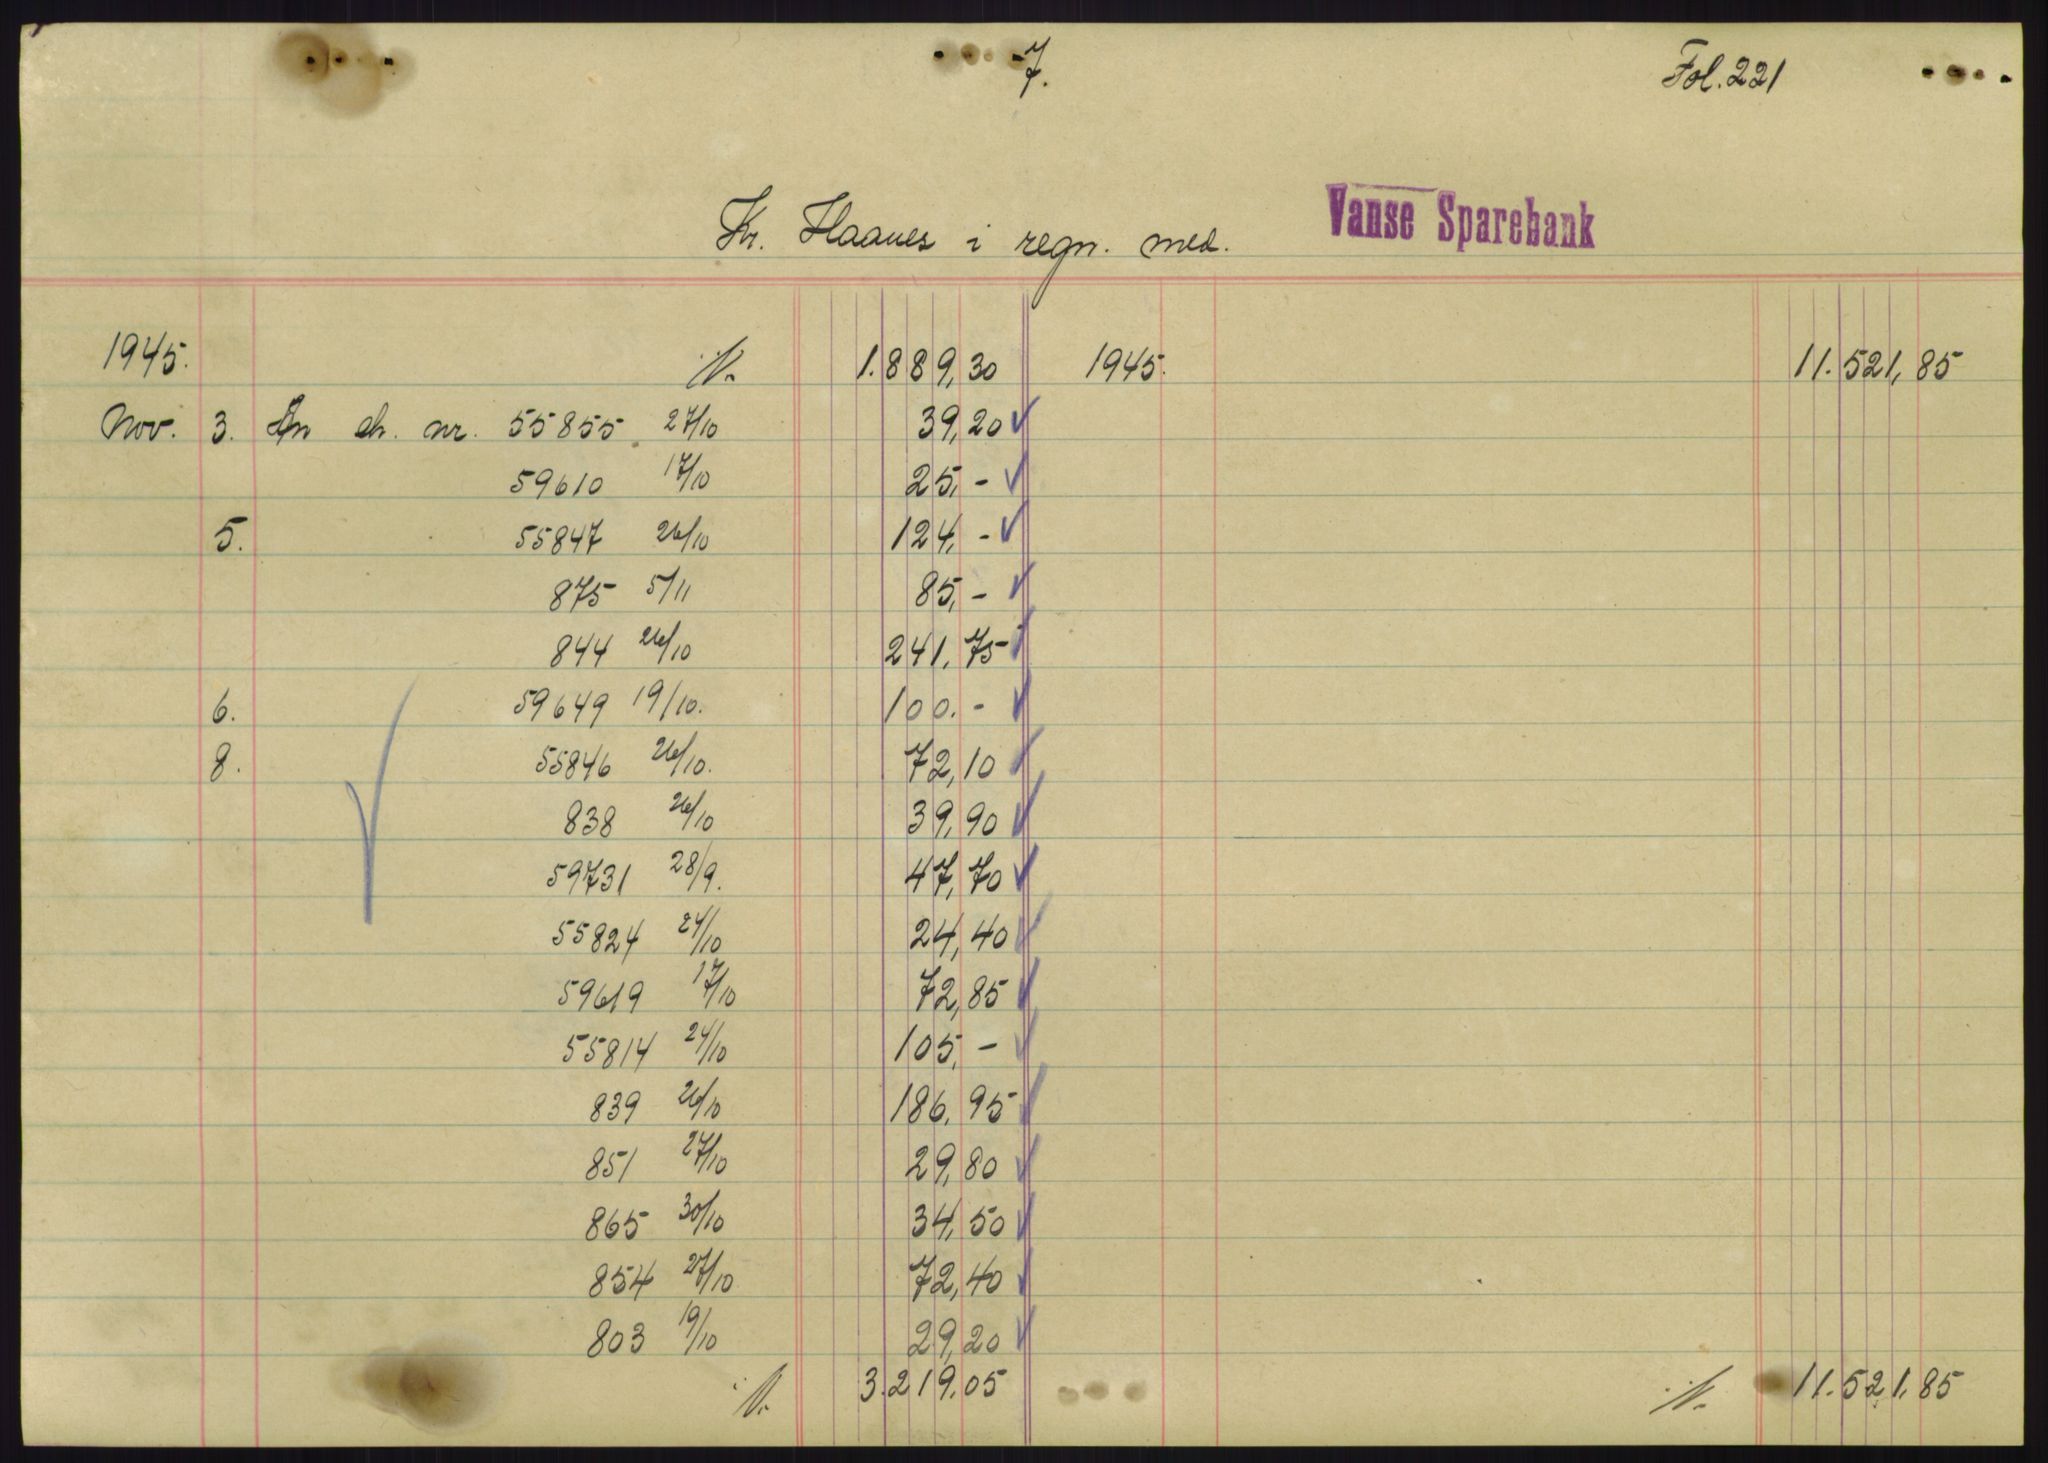 7.
Fol. 221
Kr. Haanes i regn. med. Vanse Sparebank
1945. 1.889,30 1945. 11.521,85
Nov. 3. An ch. nr. 55855 27/10 39,20 ✓
59610 17/10 25,- ✓
5. 55847 26/10 124,- ✓
875 5/11 85,- ✓
844 26/10 241,75 ✓
6. 59649 19/10. 100.- ✓
8. 55846 26/10. 72,10 ✓
838 26/10 39,90 ✓
59731 28/9. 47,70 ✓
55824 24/10 24,40 ✓
59619 17/10 72,85 ✓
55814 24/10 105,- ✓
839 26/10 186,95 ✓
851 27/10 29,80 ✓
865 30/10 34,50 ✓
854 27/10 72,40 ✓
803 19/10 29,20 ✓
3.219.05 11.521,85